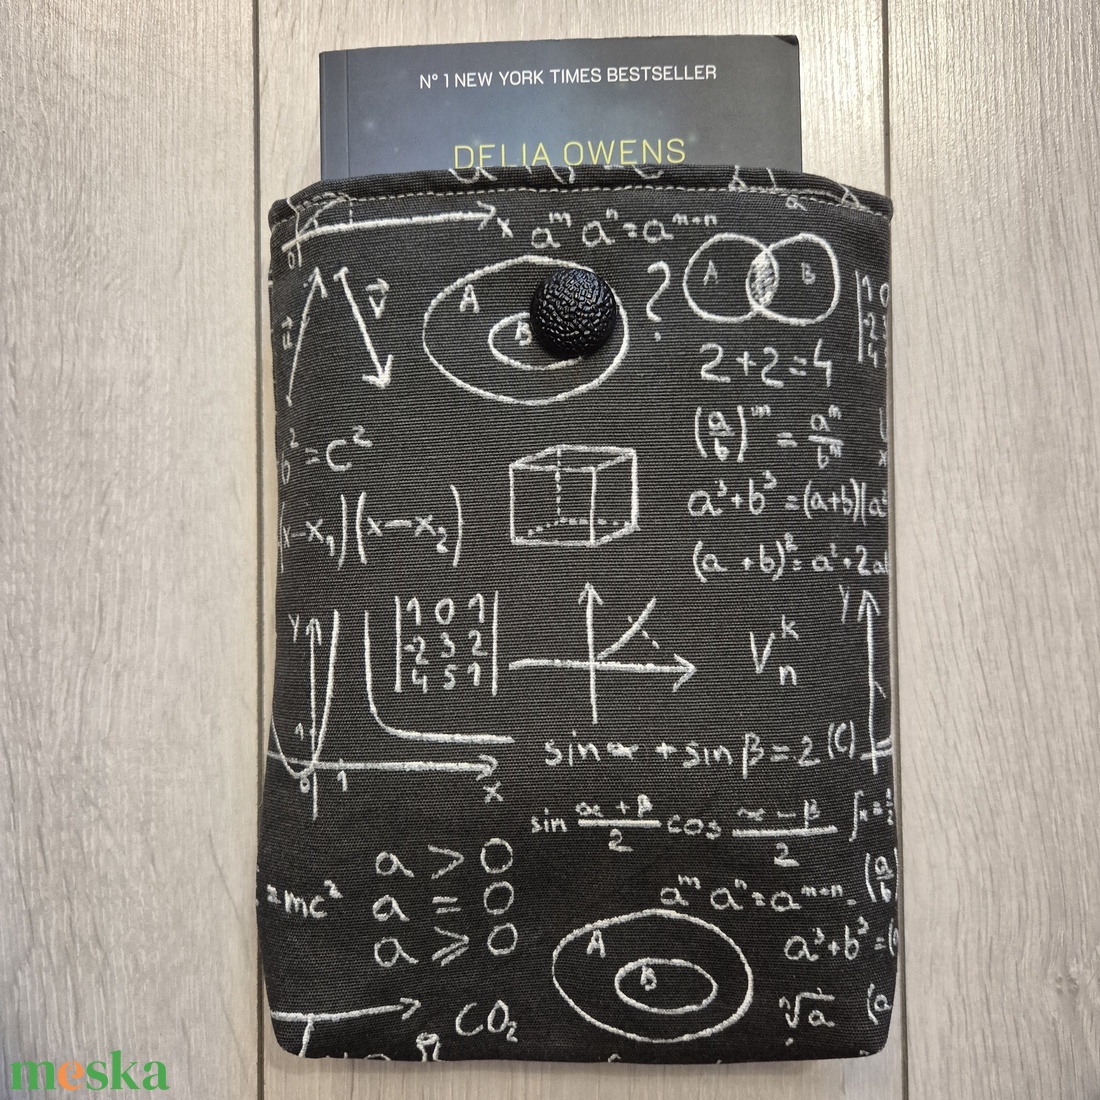 N° 1 NEW YORK TIMES BESTSELLER
DELIA OWENS
x
aᵐ aⁿ = aᵐ⁺ⁿ
a
0
A
B
?
A
B
v
2+2=4
(a/b)ᵐ = aᵐ/bᵐ
b² = c²
a³+b³=(a+b)(a²
(x-x₁)(x-x₂)
(a+b)²=a²+2a
Y
|1 0 1|
|-2 3 2|
|4 5 1|
Vₙᵏ
Y
1
0
1
x
sin α + sin β = 2 (C)
sin (α+β)/2 cos (α-β)/2
a > 0
a = 0
a ⩾ 0
=mc²
aᵐ aⁿ = aᵐ⁺ⁿ
(a/b)
A
B
a³+b³=(
ⁿ√a
(a
CO₂
meska